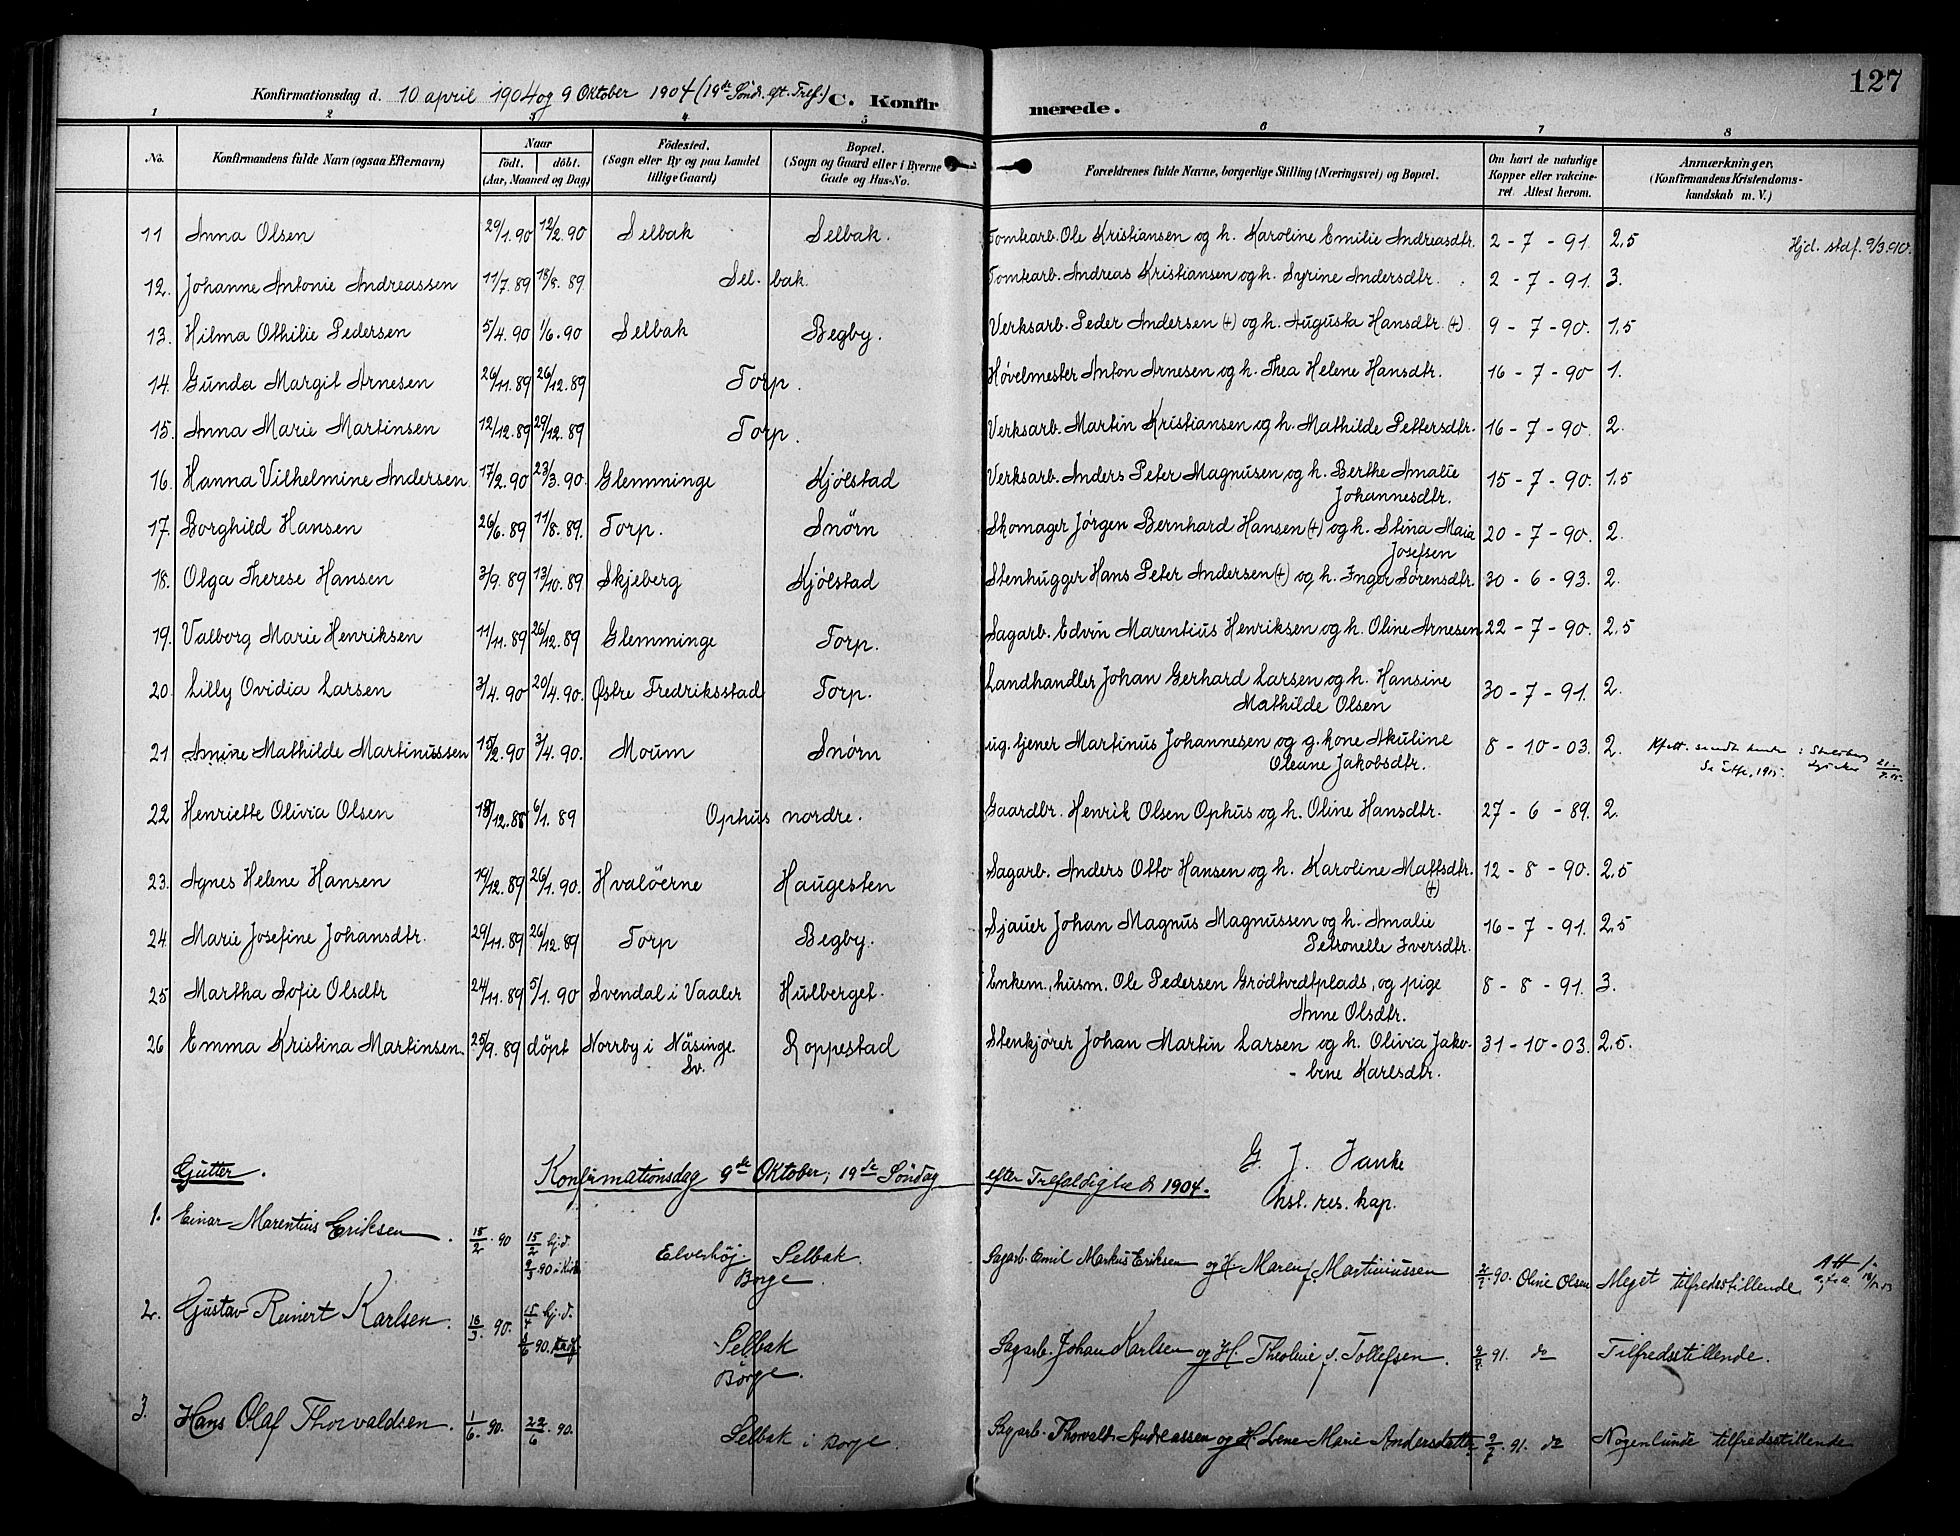 127
Konfirmationsdag d. 10 april 1904 og 9 Oktober 1904 (19de Sönd. eft. Tref.) C. Konfirmerede.
1 2 3 4 5 6 7 8
No. Konfirmandens fulde Navn (ogsaa Efternavn) Naar født. døbt. (Aar, Maaned og Dag) Fødested. (Sogn eller By og paa Landet tillige Gaard) Bopæl. (Sogn og Gaard eller i Byerne Gade og Hus-No. Forældrenes fulde Navne, borgerlige Stilling (Næringsvei) og Bopæl. Om havt de naturlige Kopper eller vakcineret. Attest herom. Anmærkninger. (Konfirmandens Kristendomskundskab m. V.)
11 Anna Olsen 29/1.90 12/2.90 Selbak Selbak. Tomtarb. Ole Kristiansen og h. Karoline Emilie Andreasdtr. 2-7-91. 2,5 Hjd. stdf. 9/3.90.
12. Johanne Antonie Andreassen 11/7.89 18/8.89 Selbak. Tomtarb. Andreas Kristiansen og h. Syrine Andersdtr. 2-7-91. 3.
13. Hilma Othilie Pedersen 5/4.90 1/6.90 Selbak Begby. Verksarb. Peder Andersen (+) og h. Augusta Hansdtr. (+). 9-7-90. 1,5
14. Gunda Margit Arnesen 26/11.89 26/12.89 Torp. Høvelmester Anton Arnesen og h. Thea Helene Hansdtr. 16-7-90 1.
15. Anna Marie Martinsen 12/12.89 29/12.89 Torp. Verksarb. Martin Kristiansen og h. Mathilde Pettersdtr. 16-7-90. 2.
16. Hanna Vilhelmine Andersen 17/2.90 23/3.90. Glemminge Kjölstad Verksarb. Anders Peter Magnusen og h. Berthe Amalie 15-7-90. 1,5
Johannesdtr.
17. Borghild Hansen 26/6.89 11/8.89. Torp. Snörn Skomager Jörgen Bernhard Hansen (+) og h. Stina Maria 20-7-90. 2.
Josefsen
18. Olga Therese Hansen 3/9.89 13/10.89 Skjeberg Kjölstad Stenhugger Hans Peter Andersen (+) og h. Inger Sörensdtr. 30-6-93. 2.
19. Valborg Marie Henriksen 11/11.89 26/12.89 Glemminge Torp. Sagarb. Edvin Marentius Henriksen og h. Oline Arnesen 22-7-90. 2,5
20. Lilly Ovidia Larsen 3/4.90 20/4.90. Østre Fredriksstad Torp. Landhandler Johan Gerhard Larsen og h. Hansine 30-7-91. 2.
Mathilde Olsen
21 Amine Mathilde Martinussen 15/2.90 3/4.90. Moum Snörn ug. tjener Martinus Johannesen og g. kone Akuline 8-10-03. 2.
Oleane Jakobsdtr.
22 Henriette Olivia Olsen 18/12.88 6/1.89 Ophus nordre. Gaardbr. Henrik Olsen Ophus og h. Oline Hansdtr. 27-6-89. 2.
23. Agnes Helene Hansen 19/12.89 26/1.90. Hvalöerne Haugesten Sagarb. Anders Otto Hansen og h. Karoline Mattsdtr. 12-8-90. 2,5
(+)
24. Marie Josefine Johansdtr. 29/11.89 26/12.89 Torp Begby. Sjauer Johan Magnus Magnussen og h. Amalie 16-7-91. 2,5
Petronelle Iversdtr.
25 Martha Sofie Olsdtr 24/11.89 5/1.90 Svendal i Vaaler Hulberget. Enkem., husm. Ole Pedersen Grödtvedtplads, og pige 8-8-91. 3.
Anne Olsdtr.
26 Emma Kristina Martinsen 25/9.89 döpt Norrby i Näsinge Sv. Roppestad Stenkjører Johan Martin Larsen og h. Olivia Jako- 31-10-03. 2,5.
- bine Karlsdtr.
Gutter. Konfirmationsdag 9de Oktober, 19de Söndag efter Trefoldighed 1904. G. J. Janke
kst. res. kap.
1. Einar Marentius Eriksen. 15/2 hj.d. 9/3 90 i Kirk Elvehöj. Selbak Borge. Sagarb. Emil Markus Eriksen og H. Maren f. Martinussen Oline Olsen Meget tilfredsstillende.
2. Gustav Reinert Karlsen. 18/3 90. hj.d. Selbak Borge. Sagarb. Johan Karlsen og H Theoline f. Tollefsen. 91. do Tilfredsstillende.
3. Hans Olaf Thorvaldsen. 1/6 90. 22/6 90. Selbak i Borge. Sagarb. Thorvald Andreassen og H. Lene Marie Andersdatter 91. do Nogenlunde tilfredsstillende